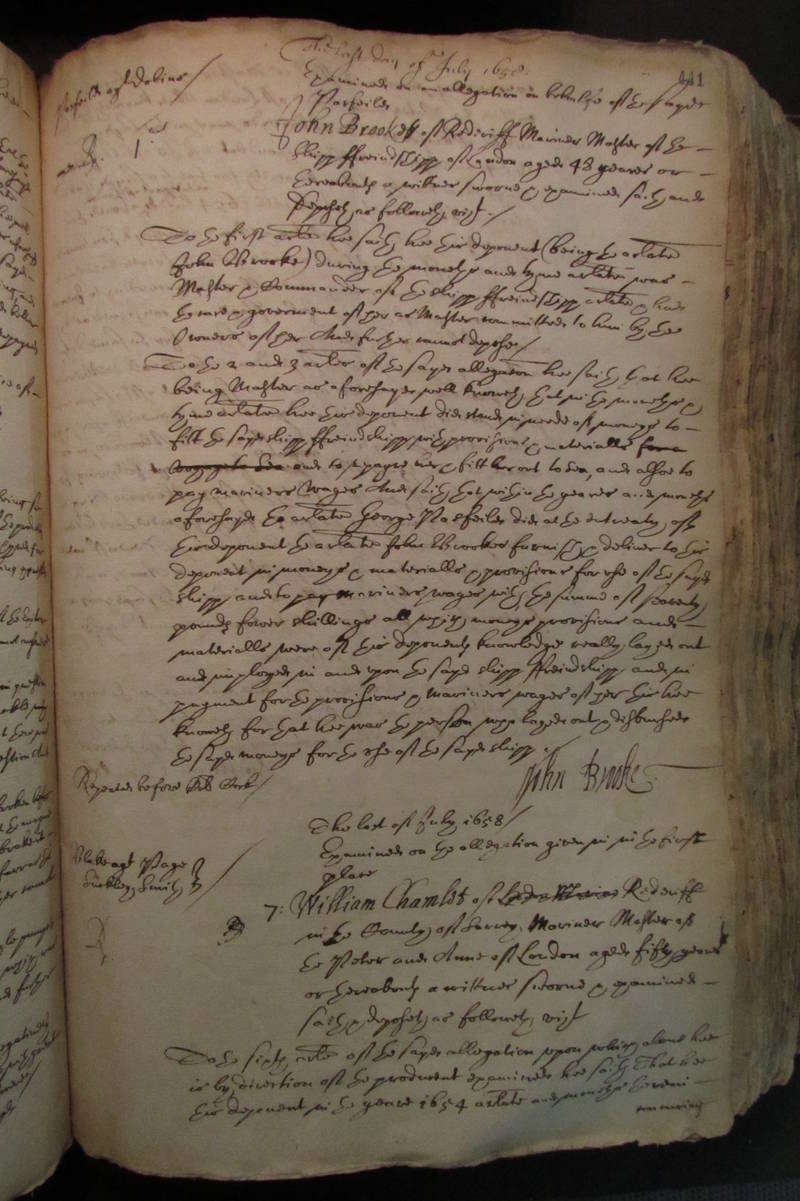 The last day of July 1658.
441
Examined on an allegation on behalfe of the sayd
Parfeild
Parfeild agt
1st
John Brookes of Redriff Mariner Master of the
shipp ffreindshipp of London aged 48 yeares or
thereabouts a wittnes sworne & examined saith and
deposeth as followeth vizt./
To the first arlẽ hee saith hee this deponent (being the arlate
John Brooke) during the moneths and tyme arlate was
Master & Commander of the shipp ffreindshipp arlate & had
the care & goverment of her as Master committed to him by the
Owners of her And further cannot depose/
To the 2 and 3 arles of the sayd allegation hee saith that hee
being Master as aforesayd well knoweth that in the moneths &
tyme arlate hee this deponent did stand in neede of moneys to
fitt the sayd shipp ffreindshipp with provisions & materialls
and to repayre her & fitt her out to sea, and alsoe to
pay mariners wages And saith that within the yeares and moneths
aforesayd the arlate George Parfeild did at the entreaty of
this deponent the arlate John Brookes furnish & deliver to this
deponent in moneys & materialls & provisions for use of the sayd
shipp and to pay mariners wages with the summe of seventy
pounds fower shillings all which moneys provisions and
materialls were of this deponents knowledge really layed out
and imployed in and upon the sayd shipp ffreindshipp and in
payment for the provisions & mariners wages of her this hee
knoweth for that hee was the person who layed out & disbursed
the sayd moneys for the use of the sayd shipp.
Repeated before
John Brooke
The last of July 1658/
Examined on the allegation given in in the first
place
Clakeagt Page
Suckley, Smith 3
7: William Chamlet of Redriff
in the County of Surrey, Mariner Master of
the Peter and Anne of London aged fifty yeares
or thereabouts a wittnes sworne & examined
saith & deposeth as followeth vizt
To the sixth arlẽ of the sayd allegation upon which alone hee
is by direction of the producent examined hee saith That hee
this deponent in the yeare 1654 arlate and moneths therein